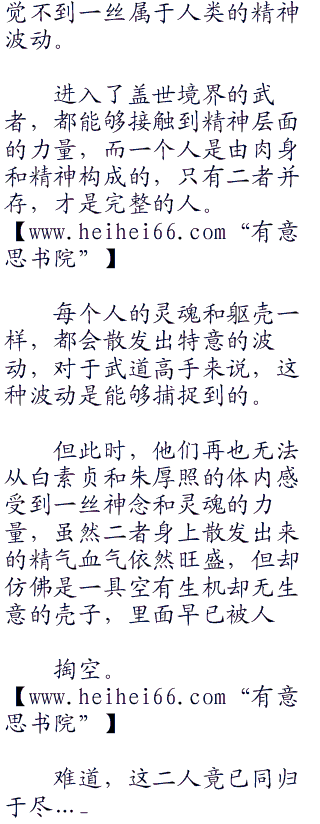 觉不到一丝属于人类的精神
波动。
进入了盖世境界的武
者，都能够接触到精神层面
的力量，而一个人是由肉身
和精神构成的，只有二者并
存，才是完整的人。
【www.heihei66.com“有意
思书院”】
每个人的灵魂和躯壳一
样，都会散发出特意的波
动，对于武道高手来说，这
种波动是能够捕捉到的。
但此时，他们再也无法
从白素贞和朱厚照的体内感
受到一丝神念和灵魂的力
量，虽然二者身上散发出来
的精气血气依然旺盛，但却
仿佛是一具空有生机却无生
意的壳子，里面早已被人
掏空。
【www.heihei66.com“有意
思书院”】
难道，这二人竟已同归
于尽…_